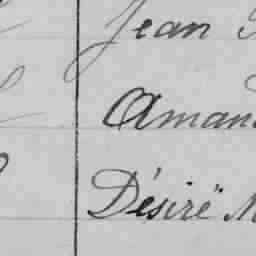 Jean
Aman
Désiré